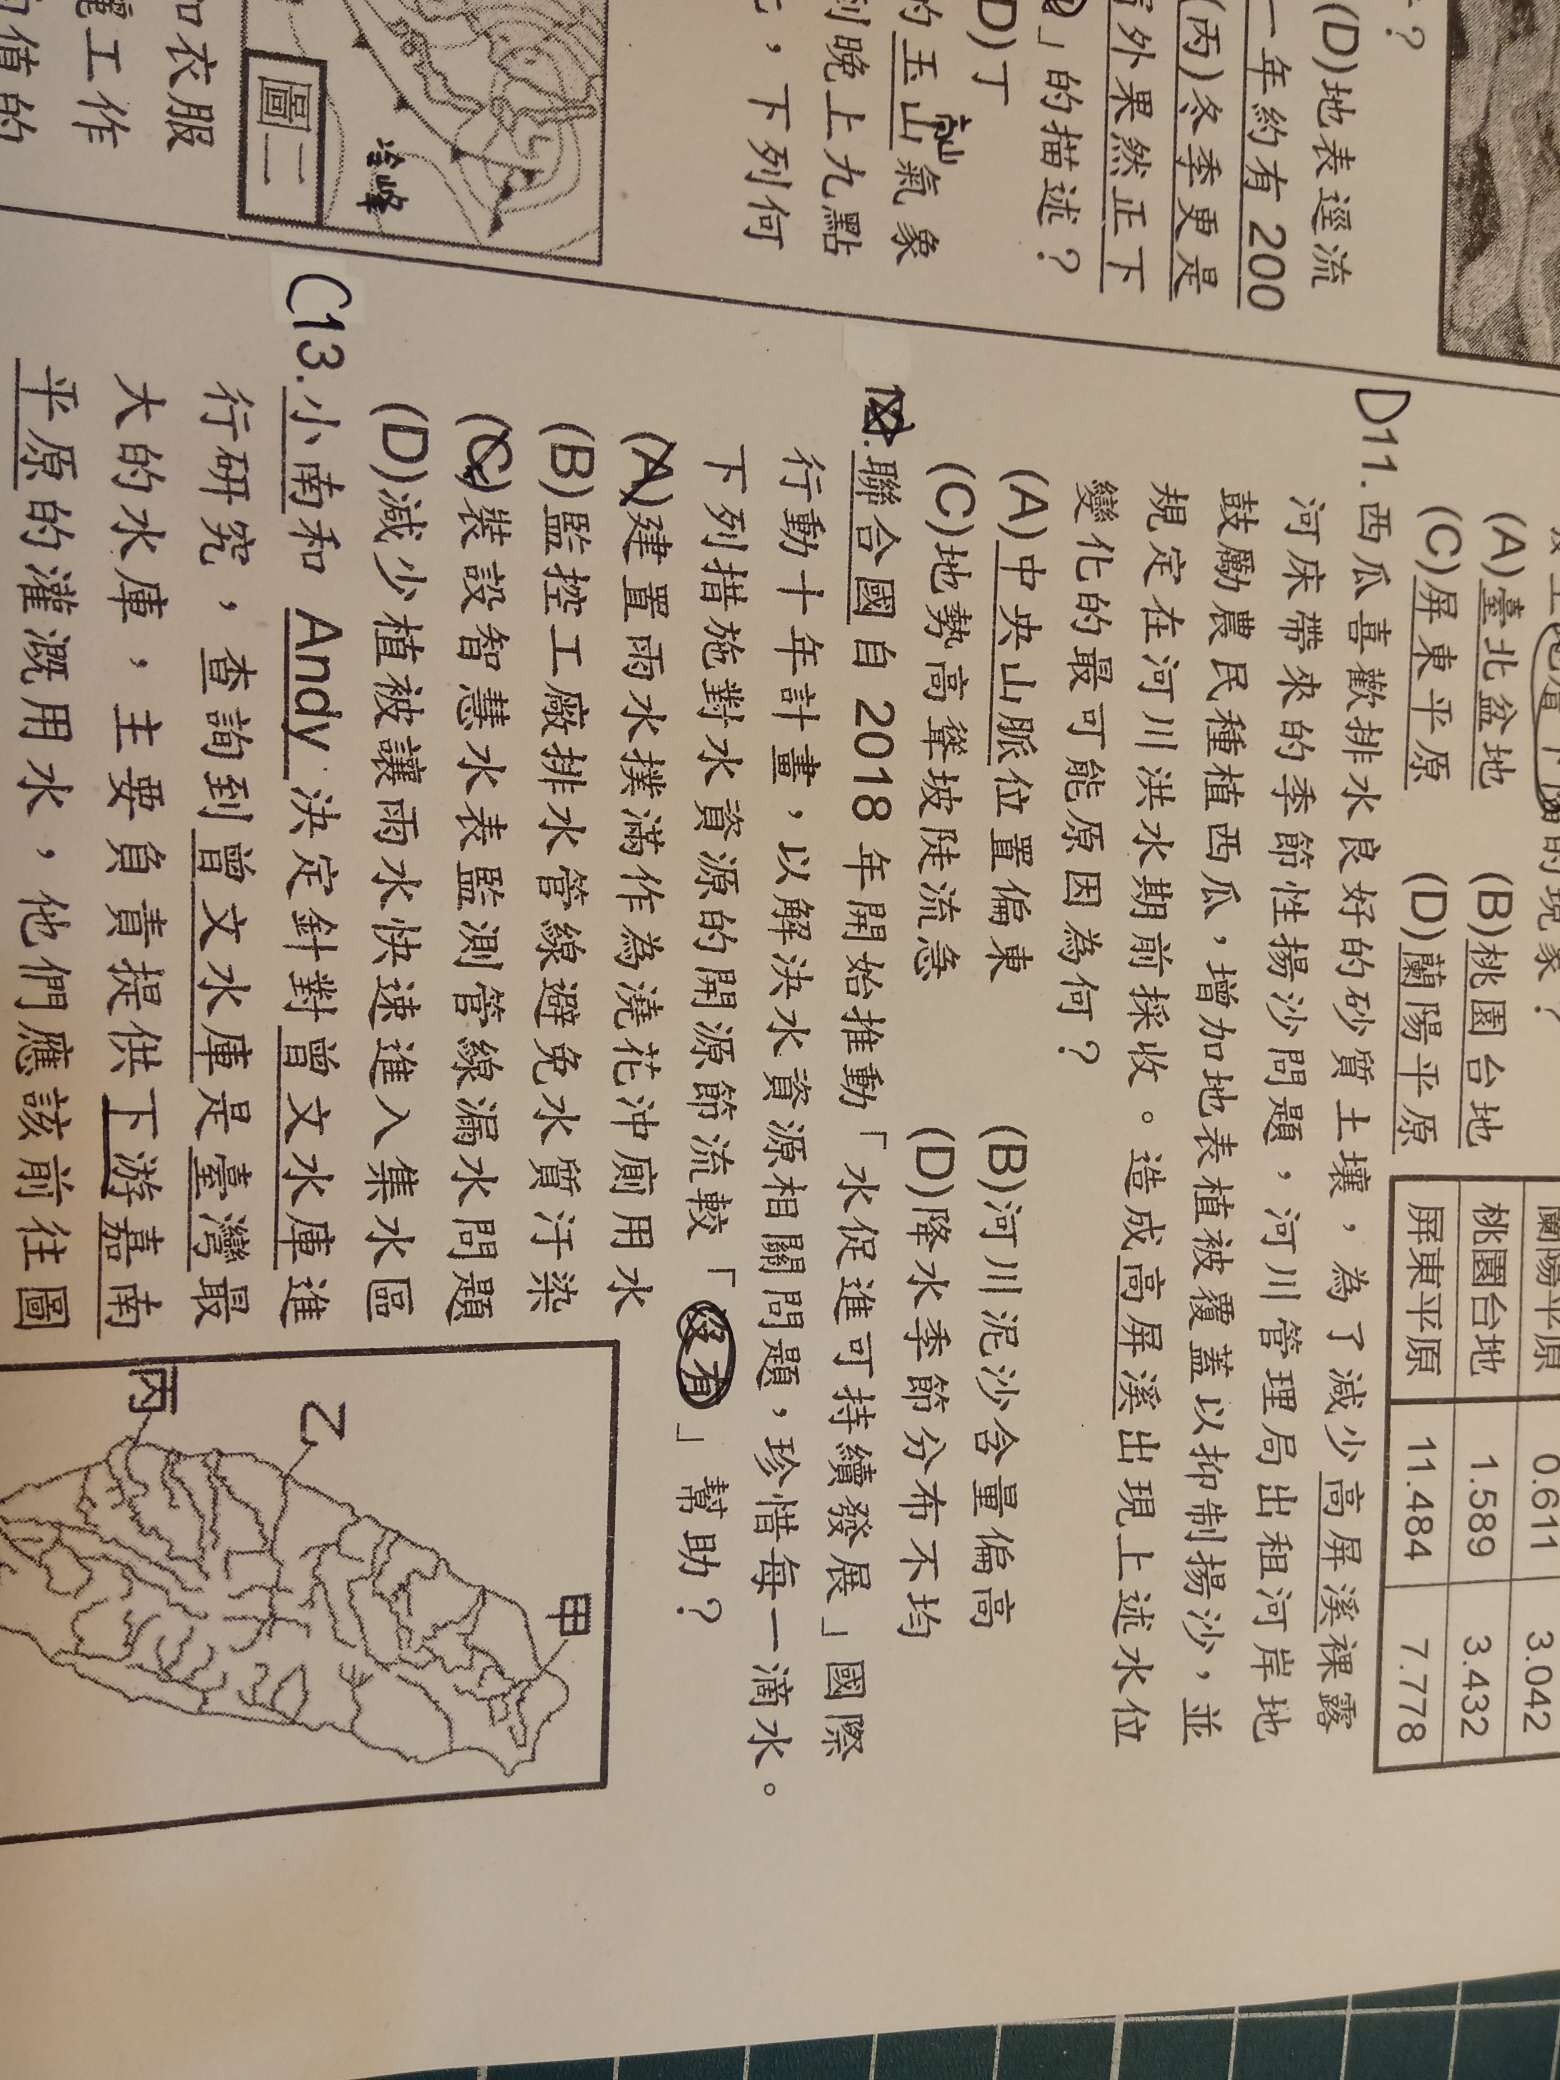 (D)地表逕流
一年約有 200
(丙)冬季更是
外果然正下
」的描述?
D)丁
高山
的玉山氣象
到晚上九點
,下列何
冷峰
圖二
和衣服
工作
值的
的現象?
(A)臺北盆地 (B)桃園台地
(C)屏東平原 (D)蘭陽平原
蘭陽平原 0.611 3.042
桃園台地 1.589 3.432
屏東平原 11.484 7.778
D11.西瓜喜歡排水良好的砂質土壤,為了減少高屏溪裸露
河床帶來的季節性揚沙問題,河川管理局出租河岸地
鼓勵農民種植西瓜,增加地表植被覆蓋以抑制揚沙,並
規定在河川洪水期前採收。造成高屏溪出現上述水位
變化的最可能原因為何?
(A)中央山脈位置偏東 (B)河川泥沙含量偏高
(C)地勢高聳坡陡流急 (D)降水季節分布不均
聯合國自 2018 年開始推動「水促進可持續發展」國際
行動十年計畫,以解決水資源相關問題,珍惜每一滴水。
下列措施對水資源的開源節流較「沒有」幫助?
(A)建置雨水撲滿作為澆花沖廁用水
(B)監控工廠排水管線避免水質汙染
(C)裝設智慧水表監測管線漏水問題
(D)減少植被讓雨水快速進入集水區
C13.小南和 Andy 決定針對曾文水庫進
行研究,查詢到曾文水庫是臺灣最
大的水庫,主要負責提供下游嘉南
平原的灌溉用水,他們應該前往圖
甲
乙
丙